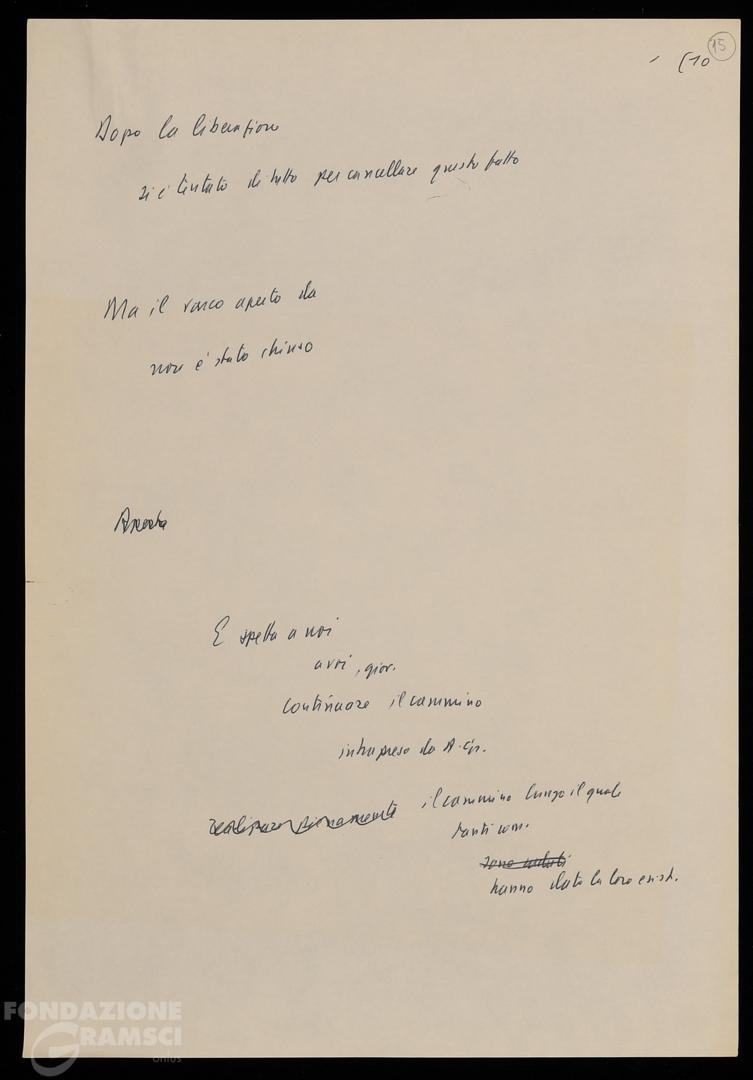 15
(10
Dopo la liberazione
si è tentato di tutto per cancellare questo fatto
Ma il varco aperto da
non è stato chiuso
E spetta a noi
a voi, giov.
continuare il cammino
intrapreso da A. Gr.
realizzare pienamente il cammino lungo il quale
tanti com.
sono caduti
hanno dato la loro esist.
FONDAZIONE
GRAMSCI
onlus